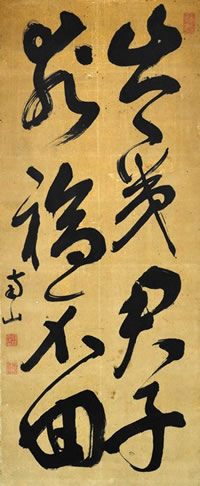 豈弟君子
求福不回
南山